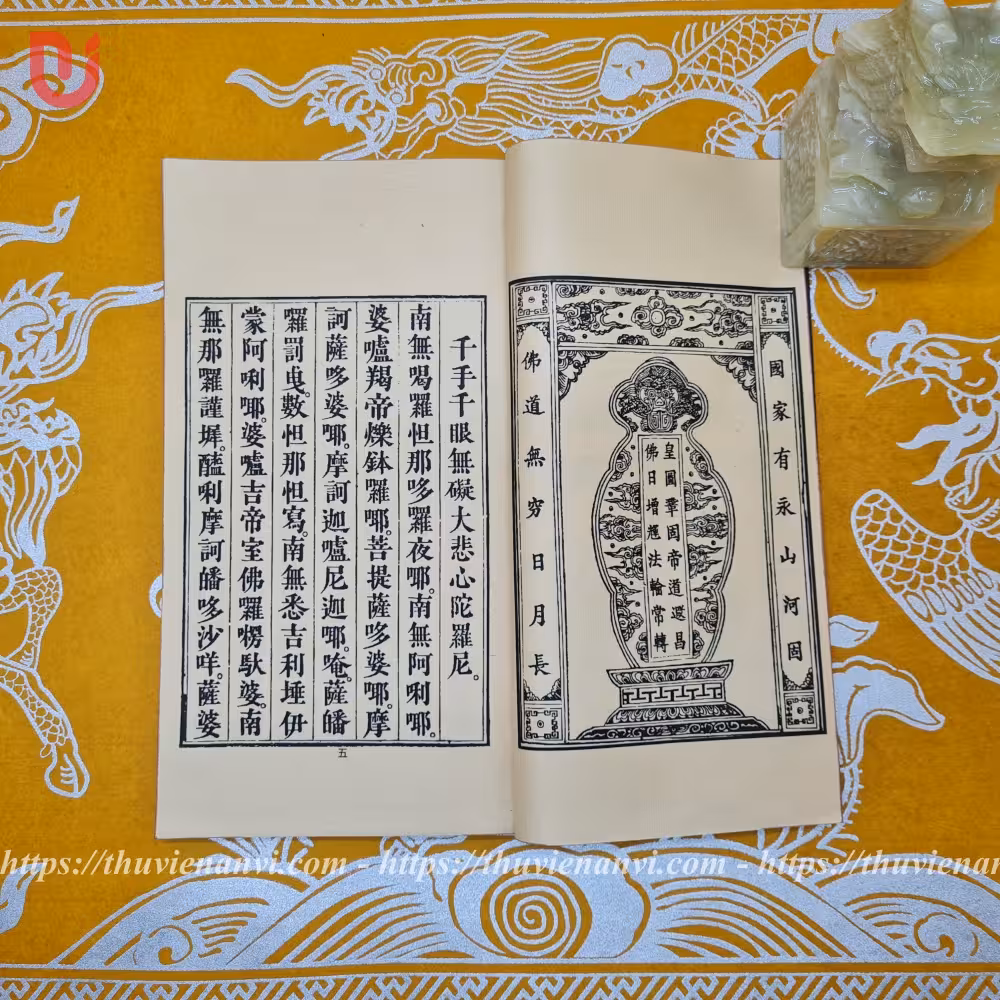 國家有永山河固
皇圖鞏固帝道遐昌
佛日增輝法輪常轉
佛道無窮日月長
千手千眼無礙大悲心陀羅尼。
南無喝囉怛那哆囉夜㖿。南無阿唎㖿。
婆嚧羯帝爍鉢囉㖿。菩提薩哆婆㖿。摩
訶薩哆婆㖿。摩訶迦嚧尼迦㖿。唵。薩皤
囉罰曳。數怛那怛寫。南無悉吉利埵伊
蒙阿唎㖿。婆嚧吉帝室佛囉楞馱婆。南
無那囉謹墀。醯唎摩訶皤哆沙咩。薩婆
五
https://thuvienanvi.com - https://thuvienanvi.com - https://thuvienan